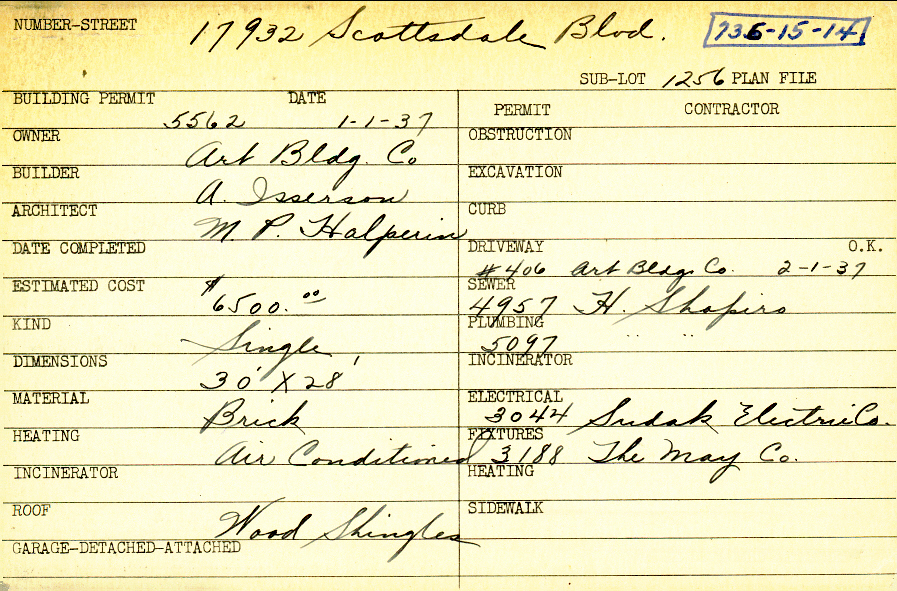 NUMBER-STREET 17932 Scottsdale Blvd. 736-15-14
SUB-LOT 1256 PLAN FILE
BUILDING PERMIT DATE
5562 1-1-37
OWNER Art Bldg. Co
BUILDER A. Isserson
ARCHITECT M. P. Halperin
DATE COMPLETED
ESTIMATED COST $6500.00
KIND Single
DIMENSIONS 30' X 28'
MATERIAL Brick
HEATING Air Conditioned
INCINERATOR
ROOF Wood Shingles
GARAGE-DETACHED-ATTACHED
PERMIT CONTRACTOR
OBSTRUCTION
EXCAVATION
CURB
DRIVEWAY O.K.
#406 Art Bldg. Co. 2-1-37
SEWER
4957 H. Shapiro
PLUMBING
5097 " "
INCINERATOR
ELECTRICAL
3044 Sudak Electric Co.
FIXTURES
3188 The May Co.
HEATING
SIDEWALK